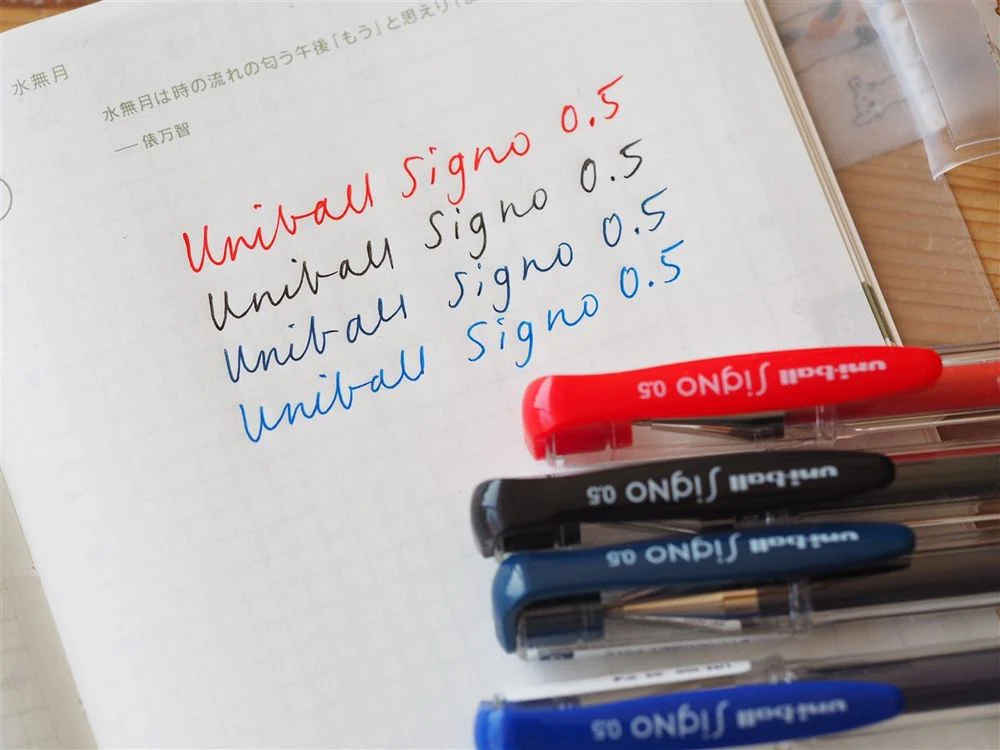 水無月
水無月は時の流れの匂う午後「もう」と思えり「
―― 俵万智
Uniball Signo 0.5
Uniball Signo 0.5
Uniball Signo 0.5
Uniball Signo 0.5
uni-ball Signo 0.5
uni-ball Signo 0.5
uni-ball Signo 0.5
uni-ball Signo 0.5